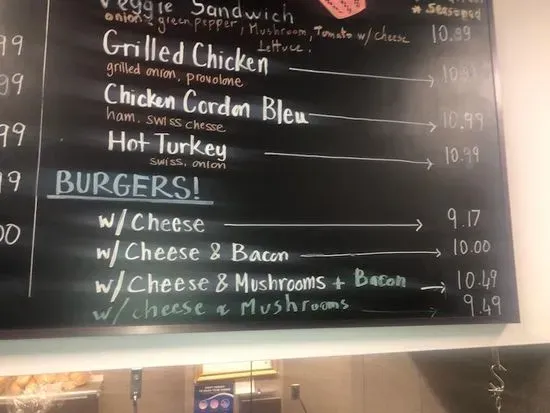 Veggie Sandwich
onion, green pepper, Mushroom, Tomato w/ cheese
Lettuce,
* Seasoned
10.99
Grilled Chicken 10.99
grilled onion, provolone
Chicken Cordon Bleu 10.99
ham, swiss chesse
Hot Turkey 10.99
swiss, onion
BURGERS!
w/ Cheese 9.17
w/ Cheese & Bacon 10.00
w/ Cheese & Mushrooms + Bacon 10.49
w/ cheese & Mushrooms 9.49